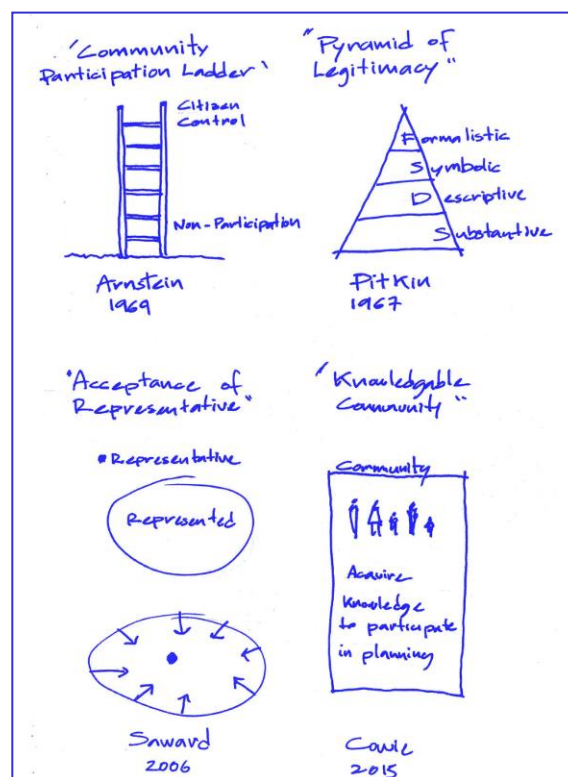 "Community
Participation Ladder"
Citizen
Control
Non-Participation
Arnstein
1969
"Pyramid of
Legitimacy"
Formalistic
Symbolic
Descriptive
Substantive
Pitkin
1967
"Acceptance of
Representative"
Representative
Represented
Saward
2006
"Knowledgable
Community"
Community
Acquire
Knowledge
to participate
in planning
2015